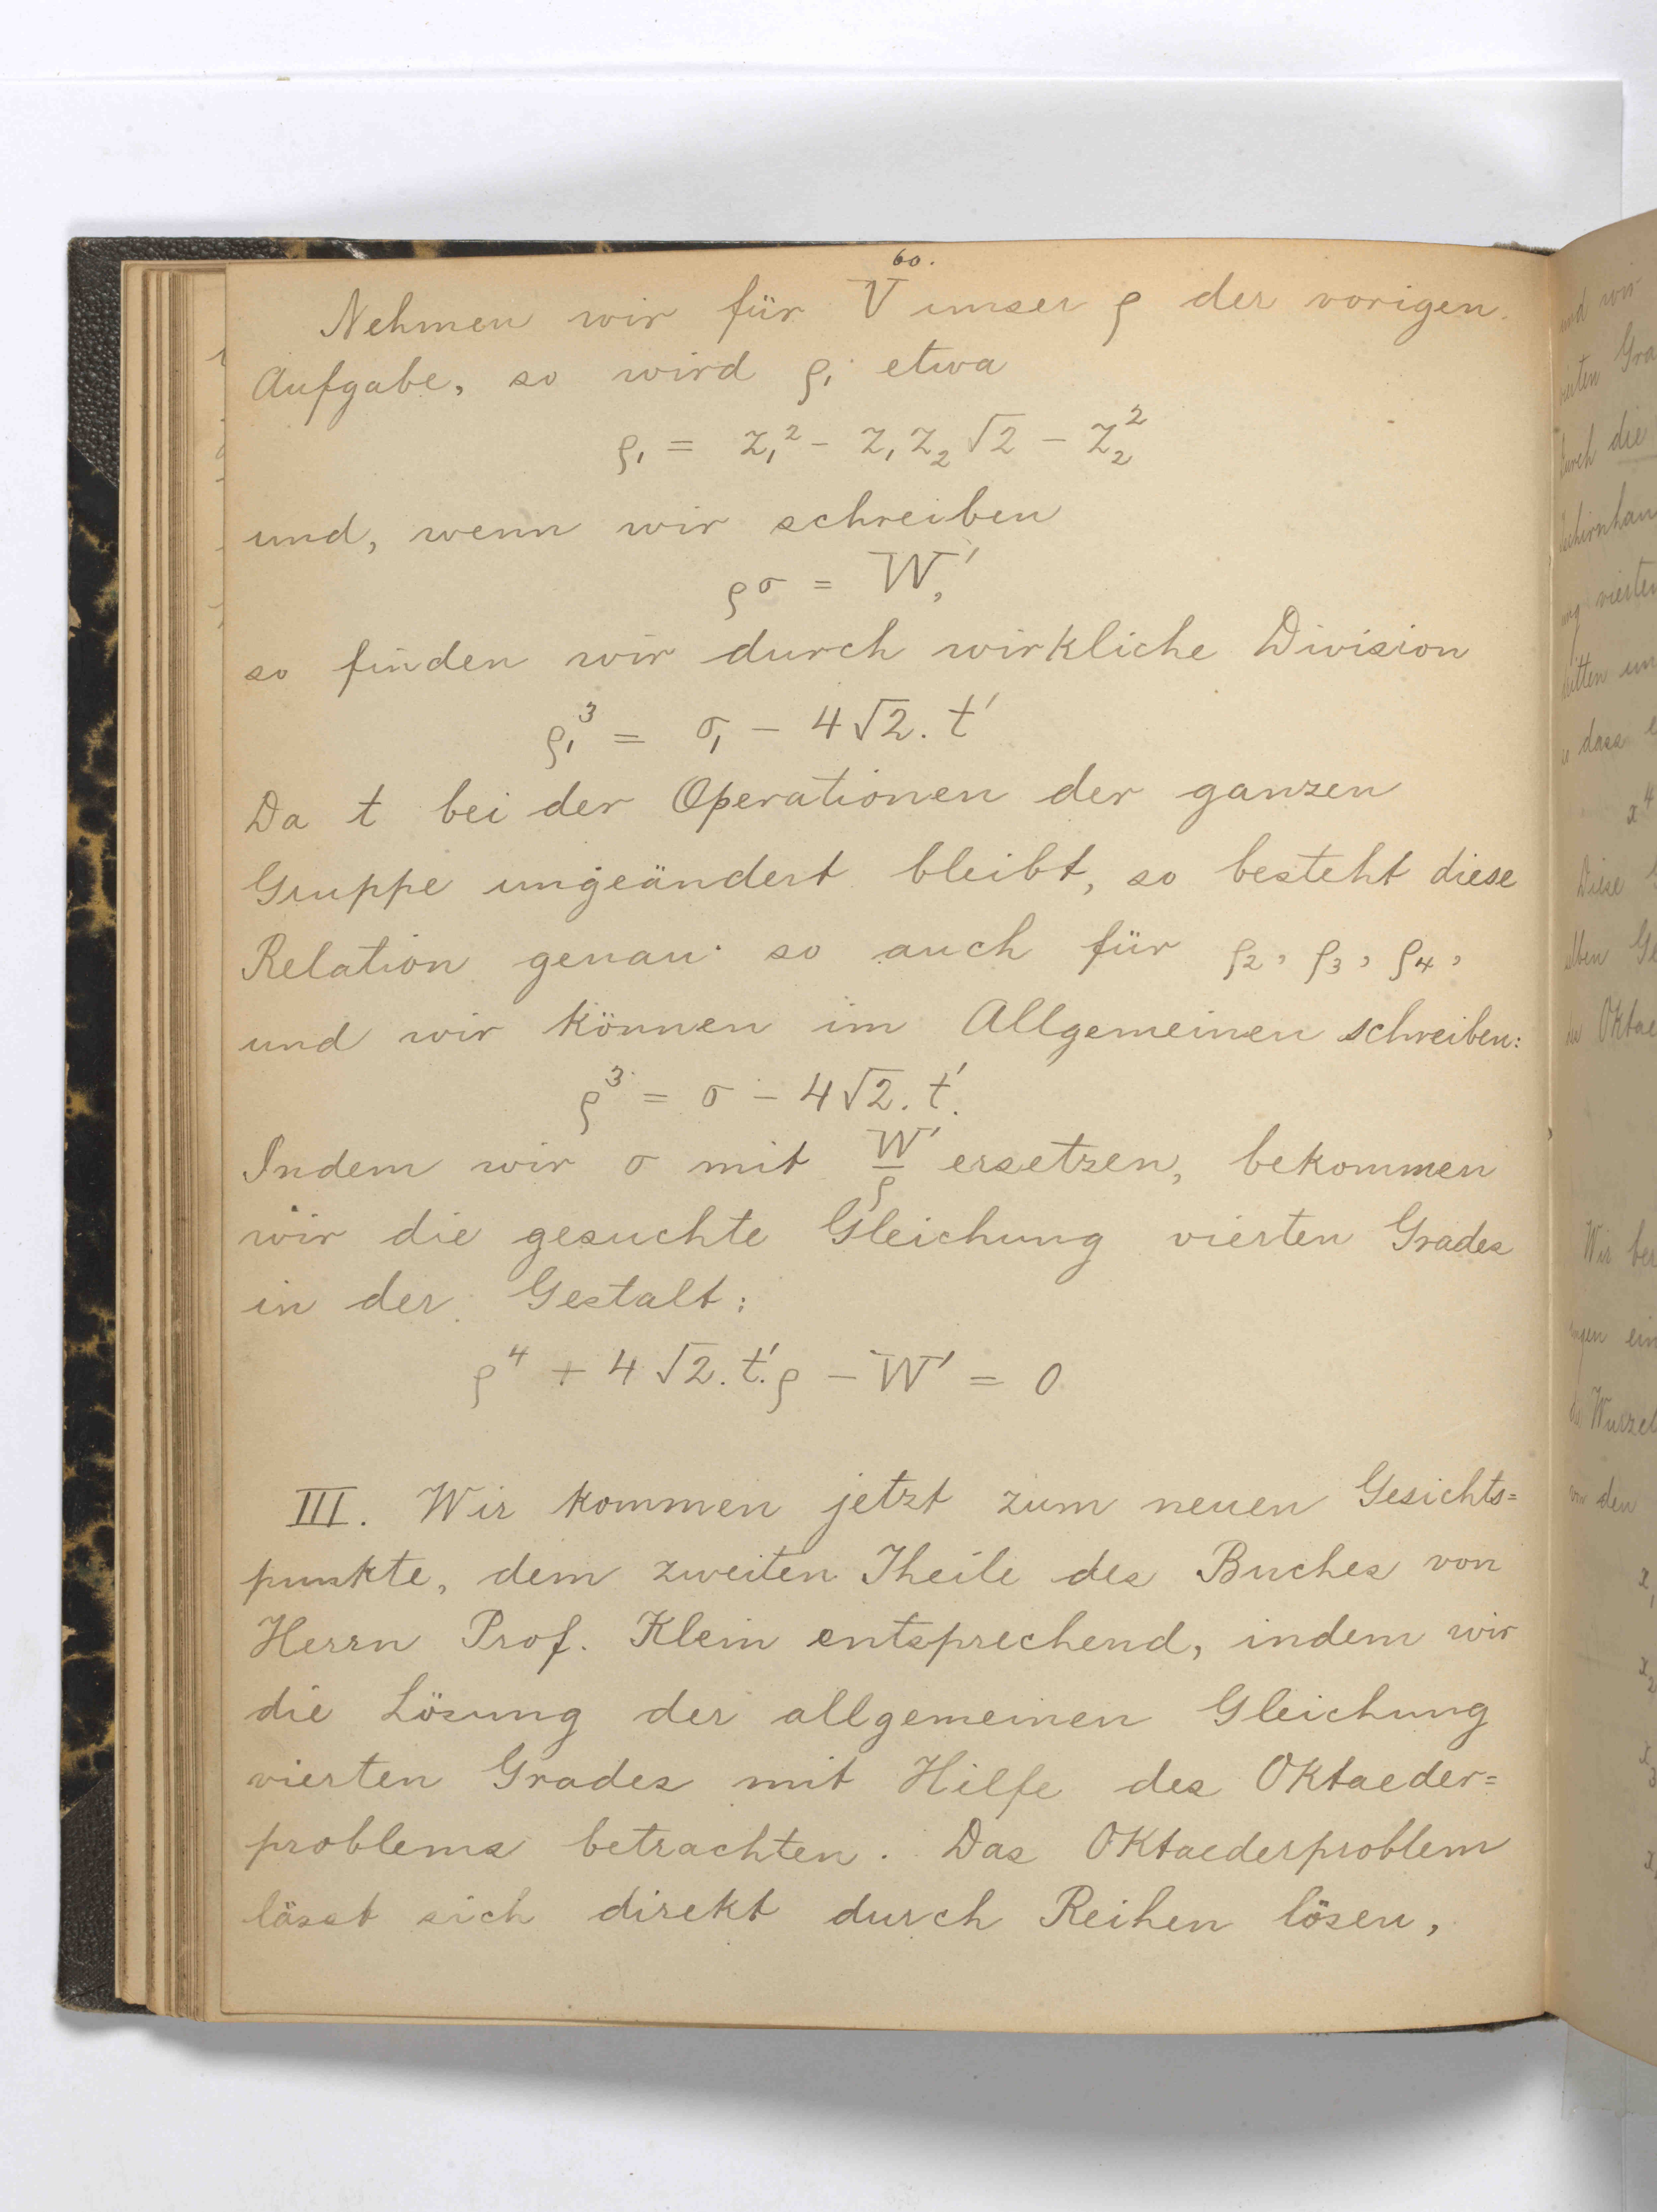 60.
Nehmen wir für V unser ρ der vorigen
Aufgabe, so wird ρ₁ etwa
ρ₁ = z₁² - z₁z₂√2 - z₂²
und, wenn wir schreiben
ρσ = W′,
so finden wir durch wirkliche Division
ρ₁³ = σ₁ - 4√2. t′
Da t bei der Operationen der ganzen
Gruppe ungeändert bleibt, so besteht diese
Relation genau so auch für ρ₂, ρ₃, ρ₄,
und wir können im Allgemeinen schreiben:
ρ³ = σ - 4√2. t′.
Indem wir σ mit W′/ρ ersetzen, bekommen
wir die gesuchte Gleichung vierten Grades
in der Gestalt:
ρ⁴ + 4√2. t′. ρ - W′ = 0
III. Wir kommen jetzt zum neuen Gesichts=
punkte, dem zweiten Theile des Buches von
Herrn Prof. Klein entsprechend, indem wir
die Lösung der allgemeinen Gleichung
vierten Grades mit Hilfe des Oktaeder=
problems betrachten. Das Oktaederproblem
lässt sich direkt durch Reihen lösen,